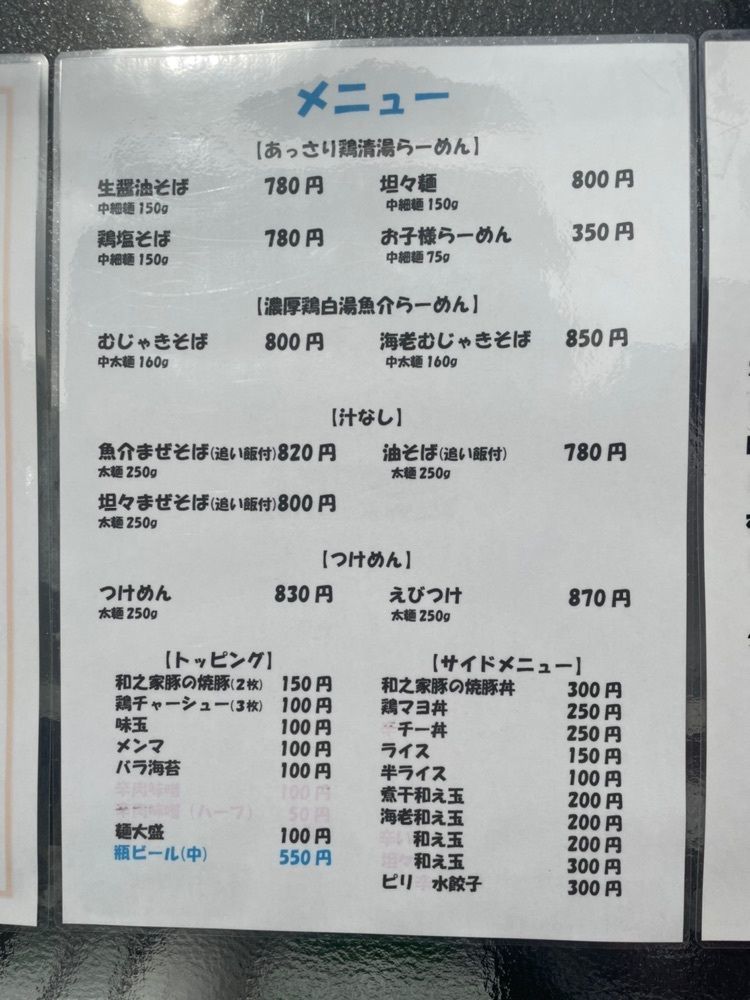 メニュー
【あっさり鶏清湯らーめん】
生醤油そば 780円 坦々麺 800円
中細麺 150g 中細麺 150g
鶏塩そば 780円 お子様らーめん 350円
中細麺 150g 中細麺 75g
【濃厚鶏白湯魚介らーめん】
むじゃきそば 800円 海老むじゃきそば 850円
中太麺 160g 中太麺 160g
【汁なし】
魚介まぜそば(追い飯付) 820円 油そば(追い飯付) 780円
太麺 250g 太麺 250g
坦々まぜそば(追い飯付) 800円
太麺 250g
【つけめん】
つけめん 830円 えびつけ 870円
太麺 250g 太麺 250g
【トッピング】
和之家豚の焼豚(2枚) 150円
鶏チャーシュー(3枚) 100円
味玉 100円
メンマ 100円
バラ海苔 100円
辛肉味噌 100円
辛肉味噌(ハーフ) 50円
麺大盛 100円
瓶ビール(中) 550円
【サイドメニュー】
和之家豚の焼豚丼 300円
鶏マヨ丼 250円
辛チー丼 250円
ライス 150円
半ライス 100円
煮干和え玉 200円
海老和え玉 200円
辛い和え玉 200円
坦々和え玉 300円
ピリ辛水餃子 300円